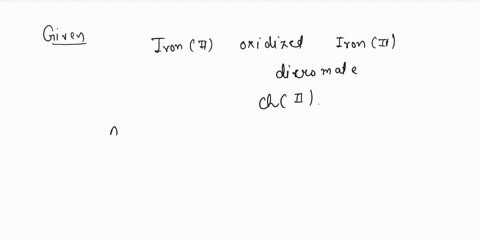 Given
Iron (II) oxidized Iron (II)
dicromate
Ch(II).